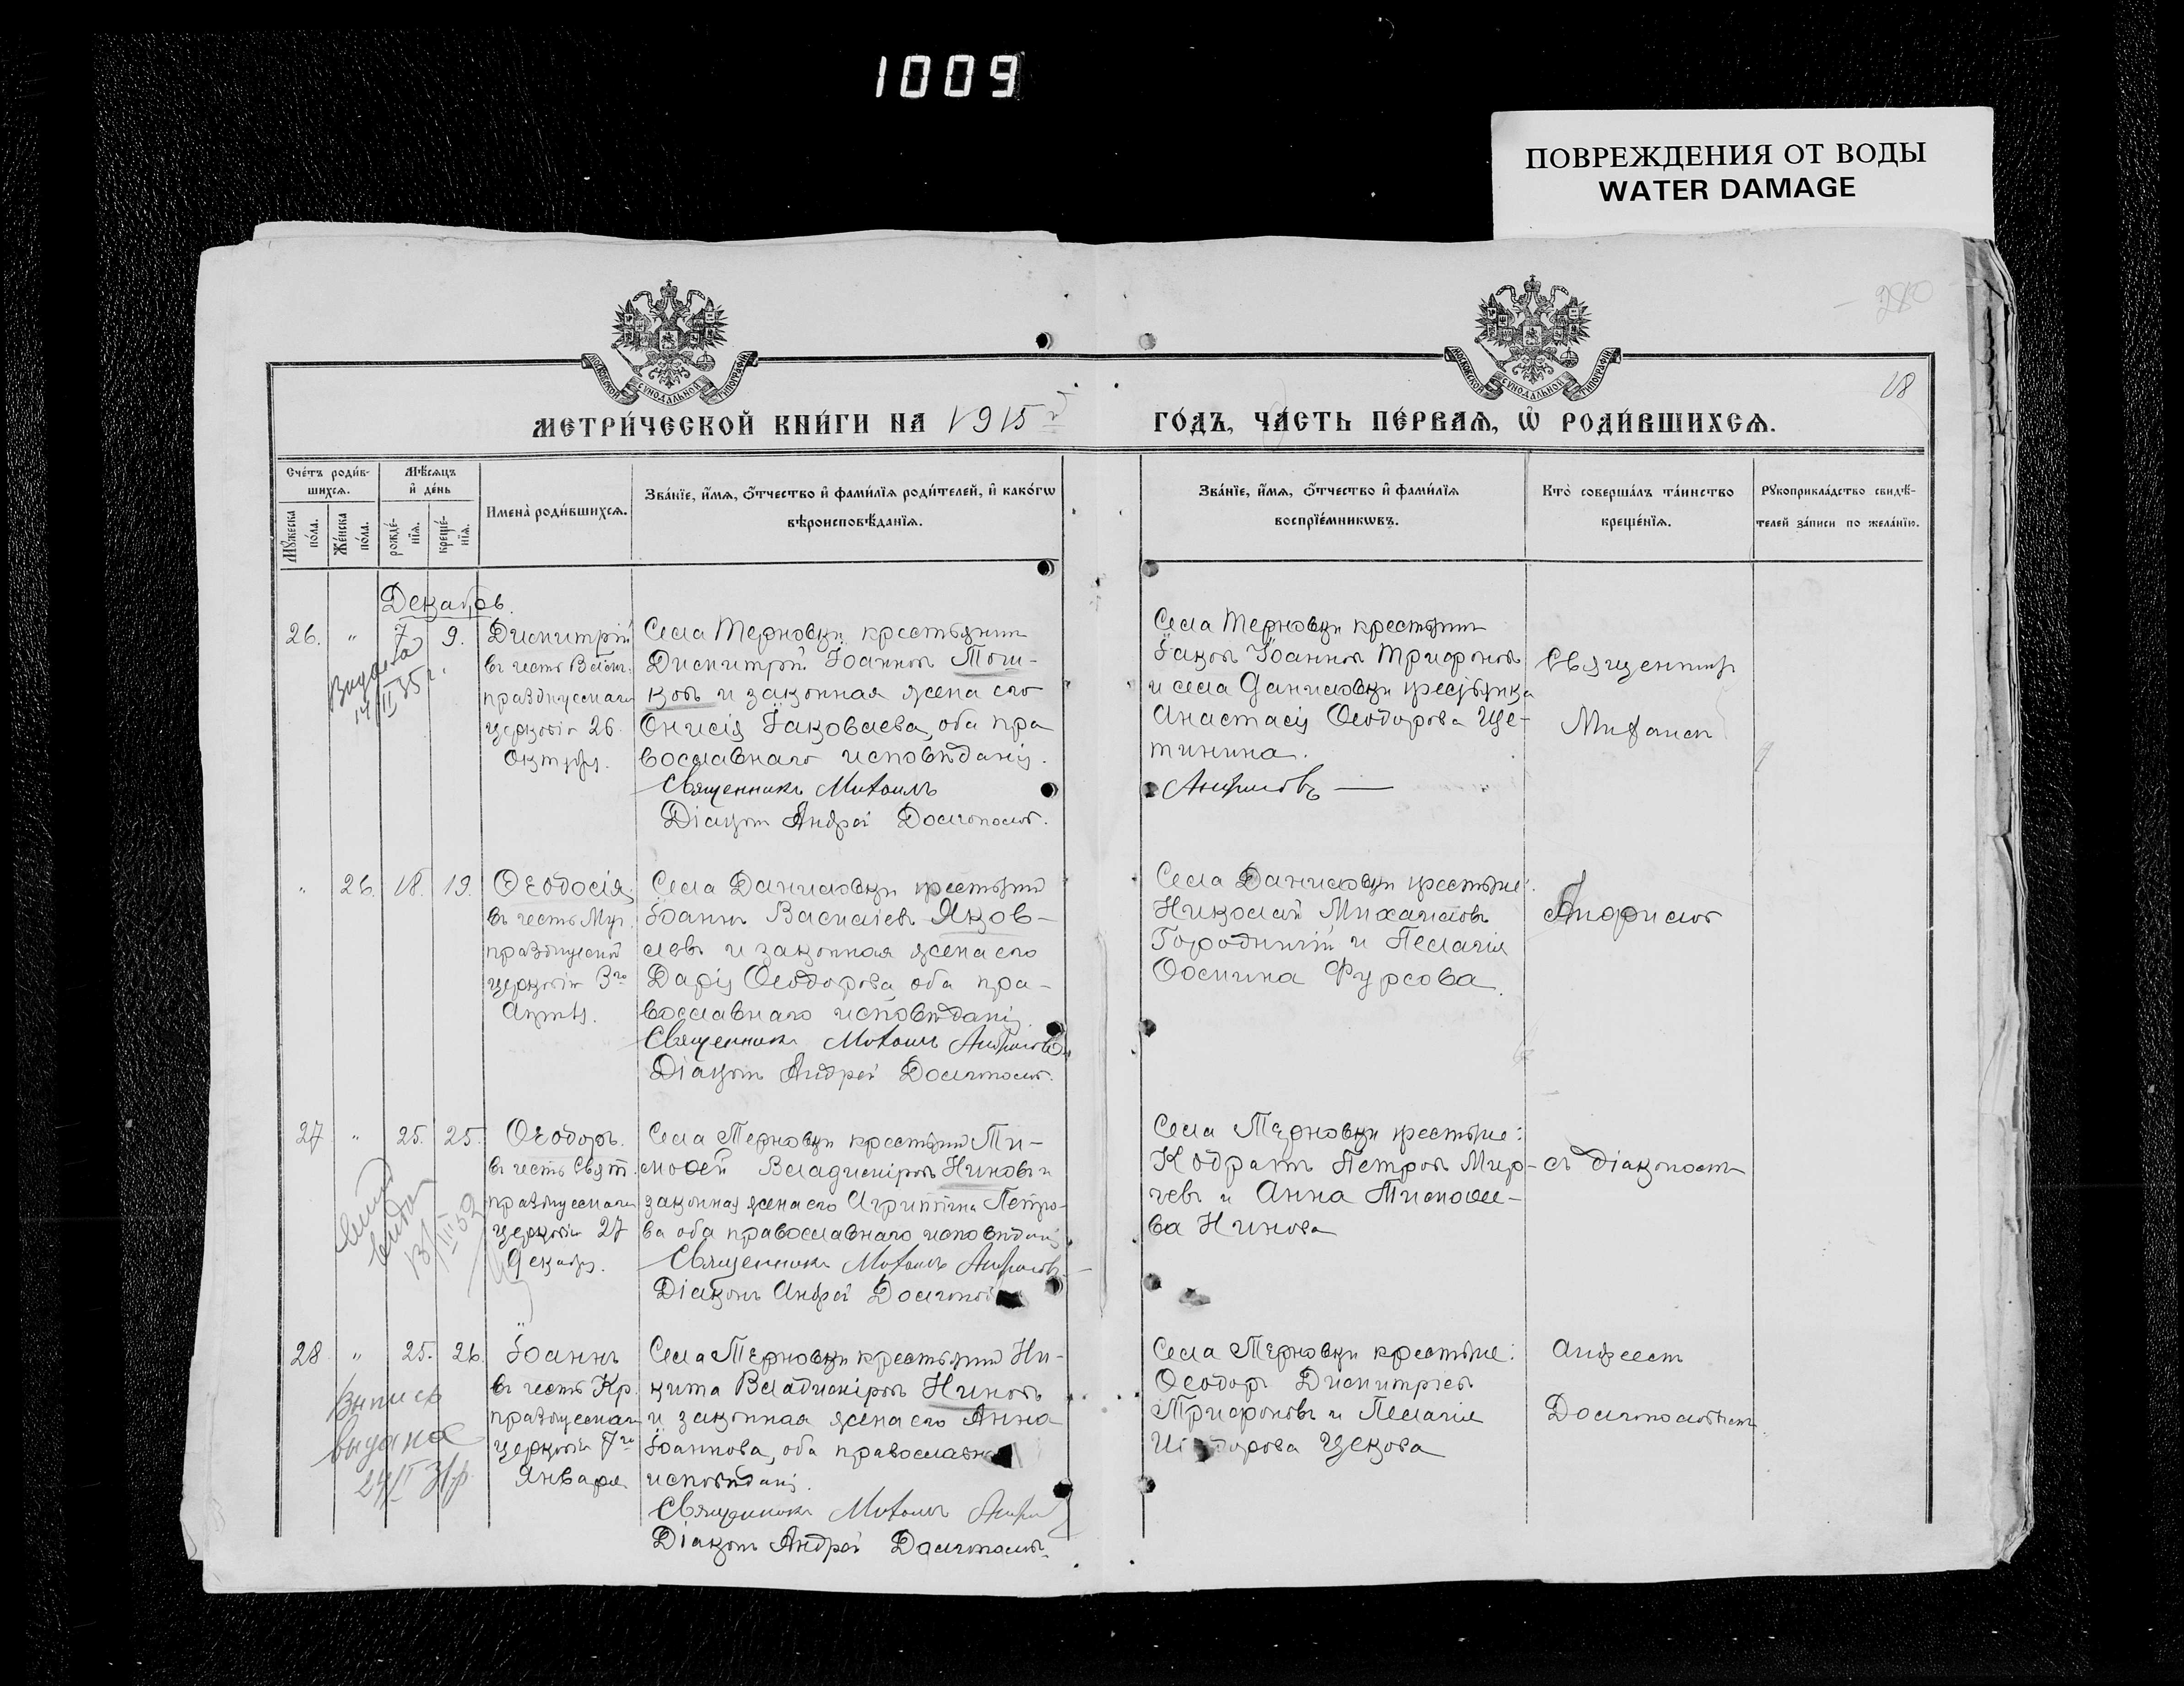 1009
ПОВРЕЖДЕНИЯ ОТ ВОДЫ
WATER DAMAGE
280
18
МОСКОВСКОЙ СУНОДАЛЬНОЙ ТИПОГРАФІИ
МОСКОВСКОЙ СУНОДАЛЬНОЙ ТИПОГРАФІИ
МЕТРИ́ЧЕСКОЙ КНИ́ГИ НА 1915й ГО́ДЪ, ЧА́СТЬ ПЕ́РВАѦ, Ѽ РОДИ́ВШИХСѦ.
Сче́тъ роди́в-
шихсѧ.
Мѣ́сѧцъ
и҆ де́нь
Мꙋ́жеска по́ла.
Же́нска по́ла.
рожде́-
нїѧ.
креще́-
нїѧ.
Имена̀ роди́вшихсѧ.
Зва́нїе, и҆́мѧ, ѻ҆́тчество и҆ фами́лїѧ роди́телей, и҆ како́гѡ
вѣроисповѣ́данїѧ.
Зва́нїе, и҆́мѧ, ѻ҆́тчество и҆ фами́лїѧ
воспрїе́мникѡвъ.
Кто̀ соверша́лъ та́инство
креще́нїѧ.
Рꙋкоприкла́дство свидѣ́-
телей за́писи по жела́нїю.
Декабрь.
26. " 7 9.
Димитрій
въ честь Велом.
празднуемаго
церковію 26
Октября.
Выдана
14/II 35 г.
Села Терновки крестьянинъ
Димитрій Іоанновъ Тош-
ковъ и законная жена его
Онисія Іаковлева, оба пра
вославнаго исповѣданія.
Священникъ Михаилъ
Діаконъ Андрей Долгополов.
Села Терновки крестьянинъ
Іаковъ Іоанновъ Трифоновъ
и села Даниловки крестьянка
Анастасія Ѳеодорова Ще-
тинина.
Анфиловъ —
Священникъ
Михаилъ
" 26. 18. 19.
Ѳеодосія.
въ честь Муч.
празднуемой
церковію 3го
Апрѣля.
Села Даниловки крестьянинъ
Іоаннъ Василіевъ Яков-
левъ и законная жена его
Дарія Ѳеодорова оба пра-
вославнаго исповѣданія
Священникъ Михаилъ Анфиловъ
Діаконъ Андрей Долгополов.
Села Даниловки крестьяне:
Николай Михаиловъ
Городничій и Пелагія
Ѳомина Фурсова.
Анфиловъ
27 " 25. 25.
Ѳеодоръ.
въ честь Свят.
празднуемаго
церковію 27
Декабря.
выдан
13/III 52
Села Терновки крестьянинъ Ти-
моѳей Владиміровъ Ниновъ и
законная жена его Агриппина Петро-
ва оба православнаго исповѣданія
Священникъ Михаилъ Анфиловъ
Діаконъ Андрей Долгопол
Села Терновки крестьяне:
Кодратъ Петровъ Мир-
чевъ и Анна Тимоѳее-
ва Нинова
съ діакономъ
28 " 25. 26.
Іоаннъ
въ честь Кр.
празднуемаго
церковію 7го
Января
Выпись
выдана
24/I
Села Терновки крестьянинъ Ни-
кита Владиміровъ Ниновъ
и законная жена его Анна
Іоаннова, оба православна
исповѣданія.
Священникъ Михаилъ Анфи
Діаконъ Андрей Долгополов.
Села Терновки крестьяне:
Ѳеодоръ Димитріевъ
Трифоновъ и Пелагія
дорова Цекова
Андреемъ
Долгополовымъ.